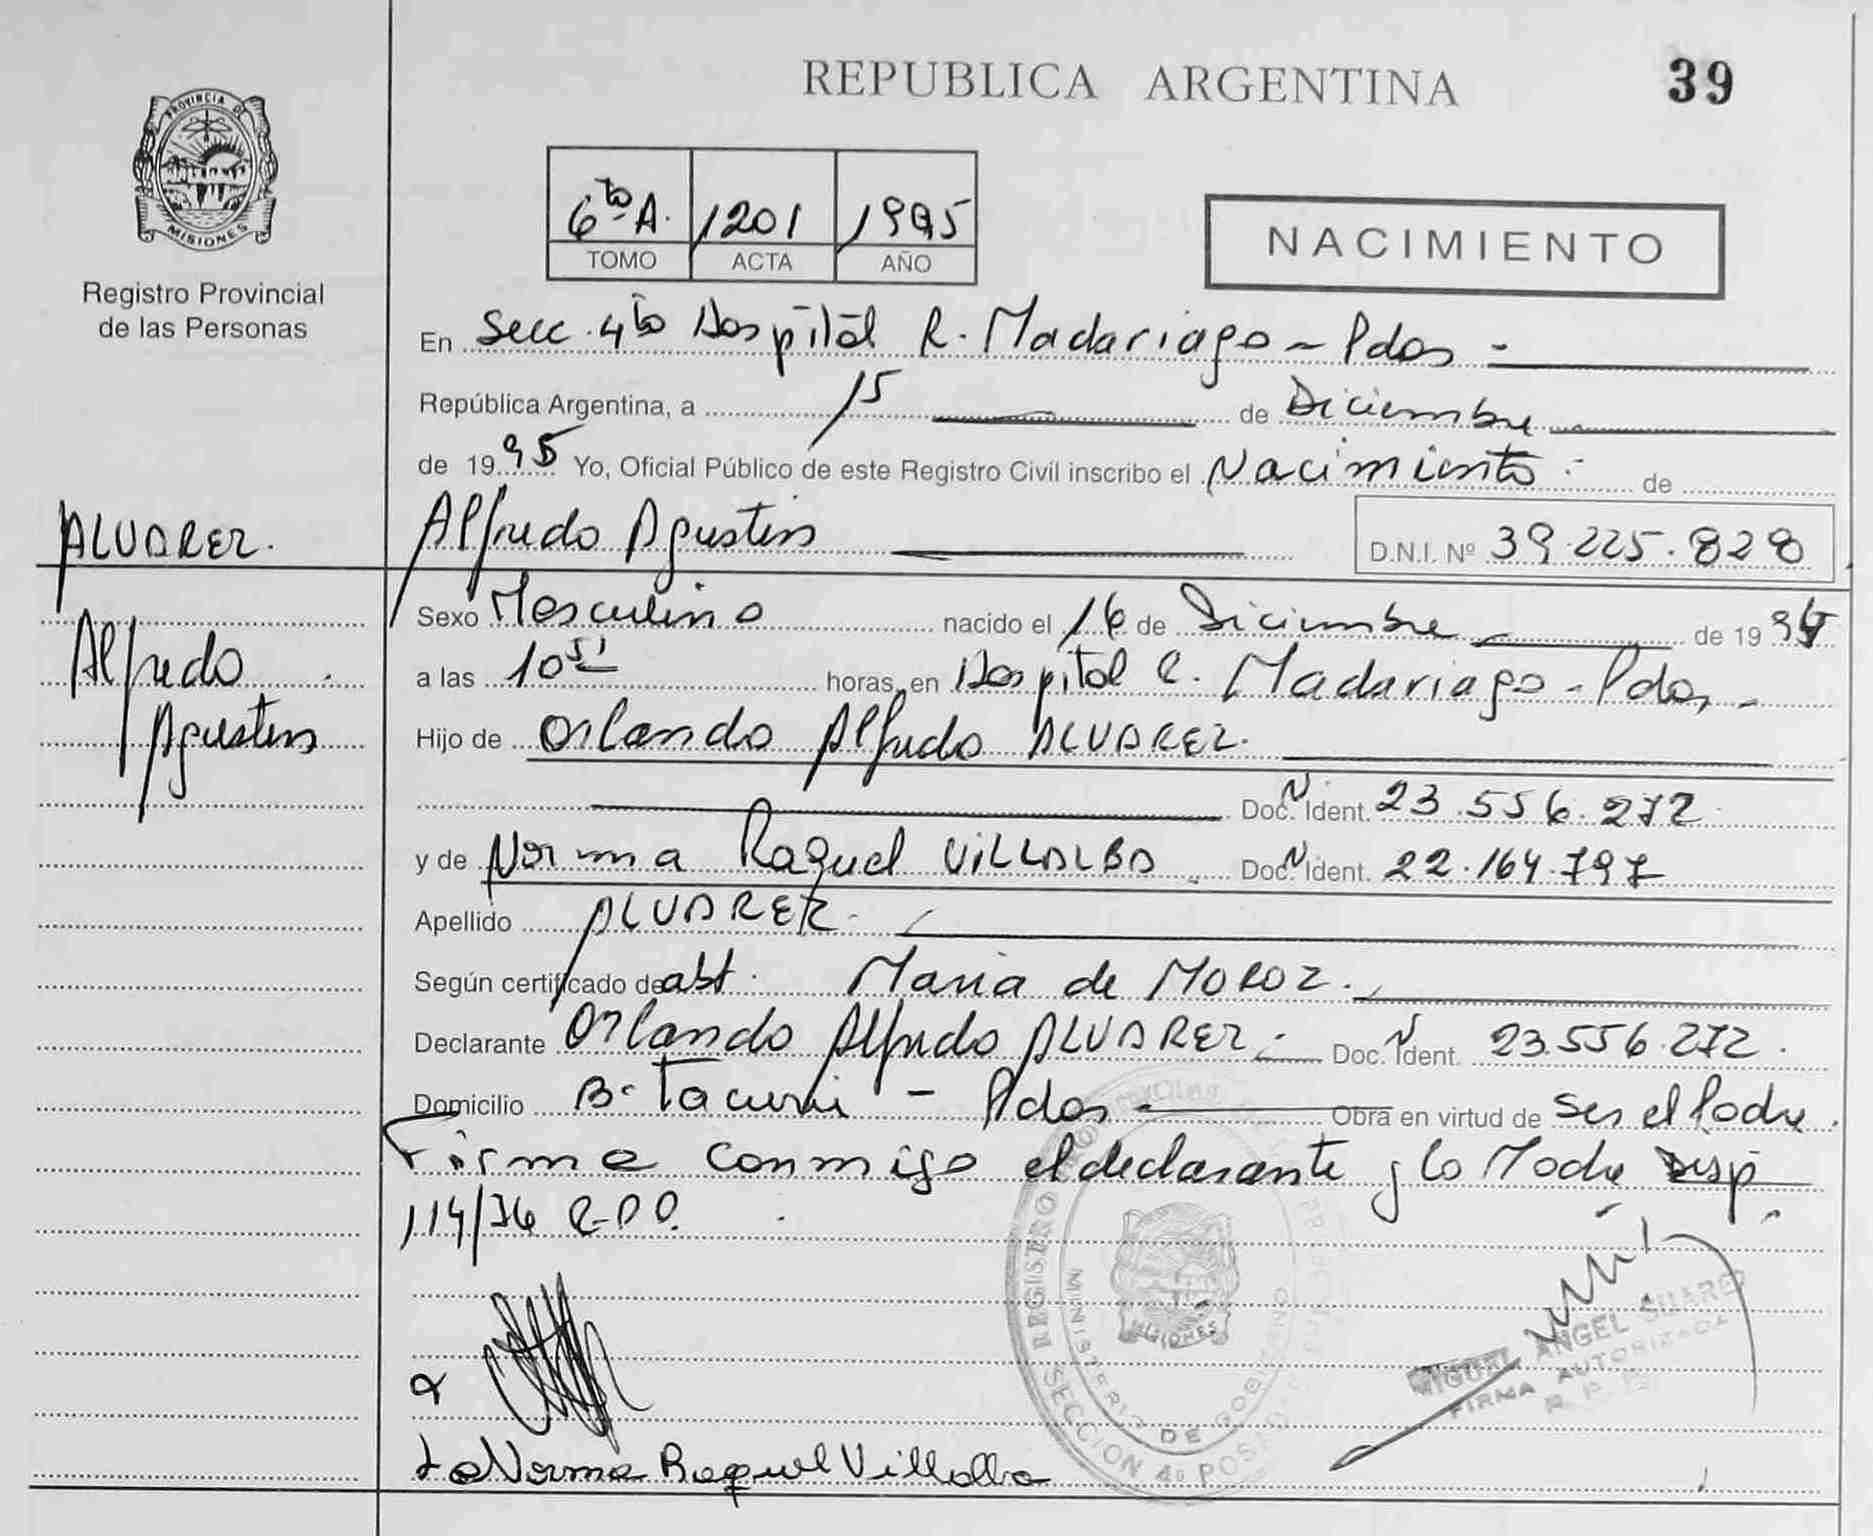 REPUBLICA ARGENTINA
39
PROVINCIA DE
MISIONES
Registro Provincial
de las Personas
6to A. 1201 1995
TOMO ACTA AÑO
NACIMIENTO
En Secc. 4to Hospital R. Madariaga - Pdas -
República Argentina, a 15 de Diciembre
de 1995 Yo, Oficial Público de este Registro Civil inscribo el Nacimiento de
ALVAREZ.
Alfredo Agustin
D.N.I. Nº 39.225.828
Alfredo
Agustin
Sexo Masculino nacido el de Diciembre de 19
a las 10 51 horas, en Hospital R. Madariaga - Pdas -
Hijo de Orlando Alfredo ALVAREZ.
Doc. N Ident. 23.556.272
y de Norma Raquel VILLALBA Doc. N Ident. 22.164.797
Apellido ALVAREZ.
Según certificado de obst. Maria de MOROZ.
Declarante Orlando Alfredo ALVAREZ Doc. N Ident. 23.556.272.
Domicilio Bº Tacurú - Pdas - Obra en virtud de ser el Padre.
Firma conmigo el declarante y la Madre Disp
114/76 R.P.P.
REGISTRO
MINISTERIO DE GOBIERNO
SECCION 4a POSADAS
MISIONES
MIGUEL ANGEL SUAREZ
FIRMA AUTORIZADA
Norma Raquel Villalba